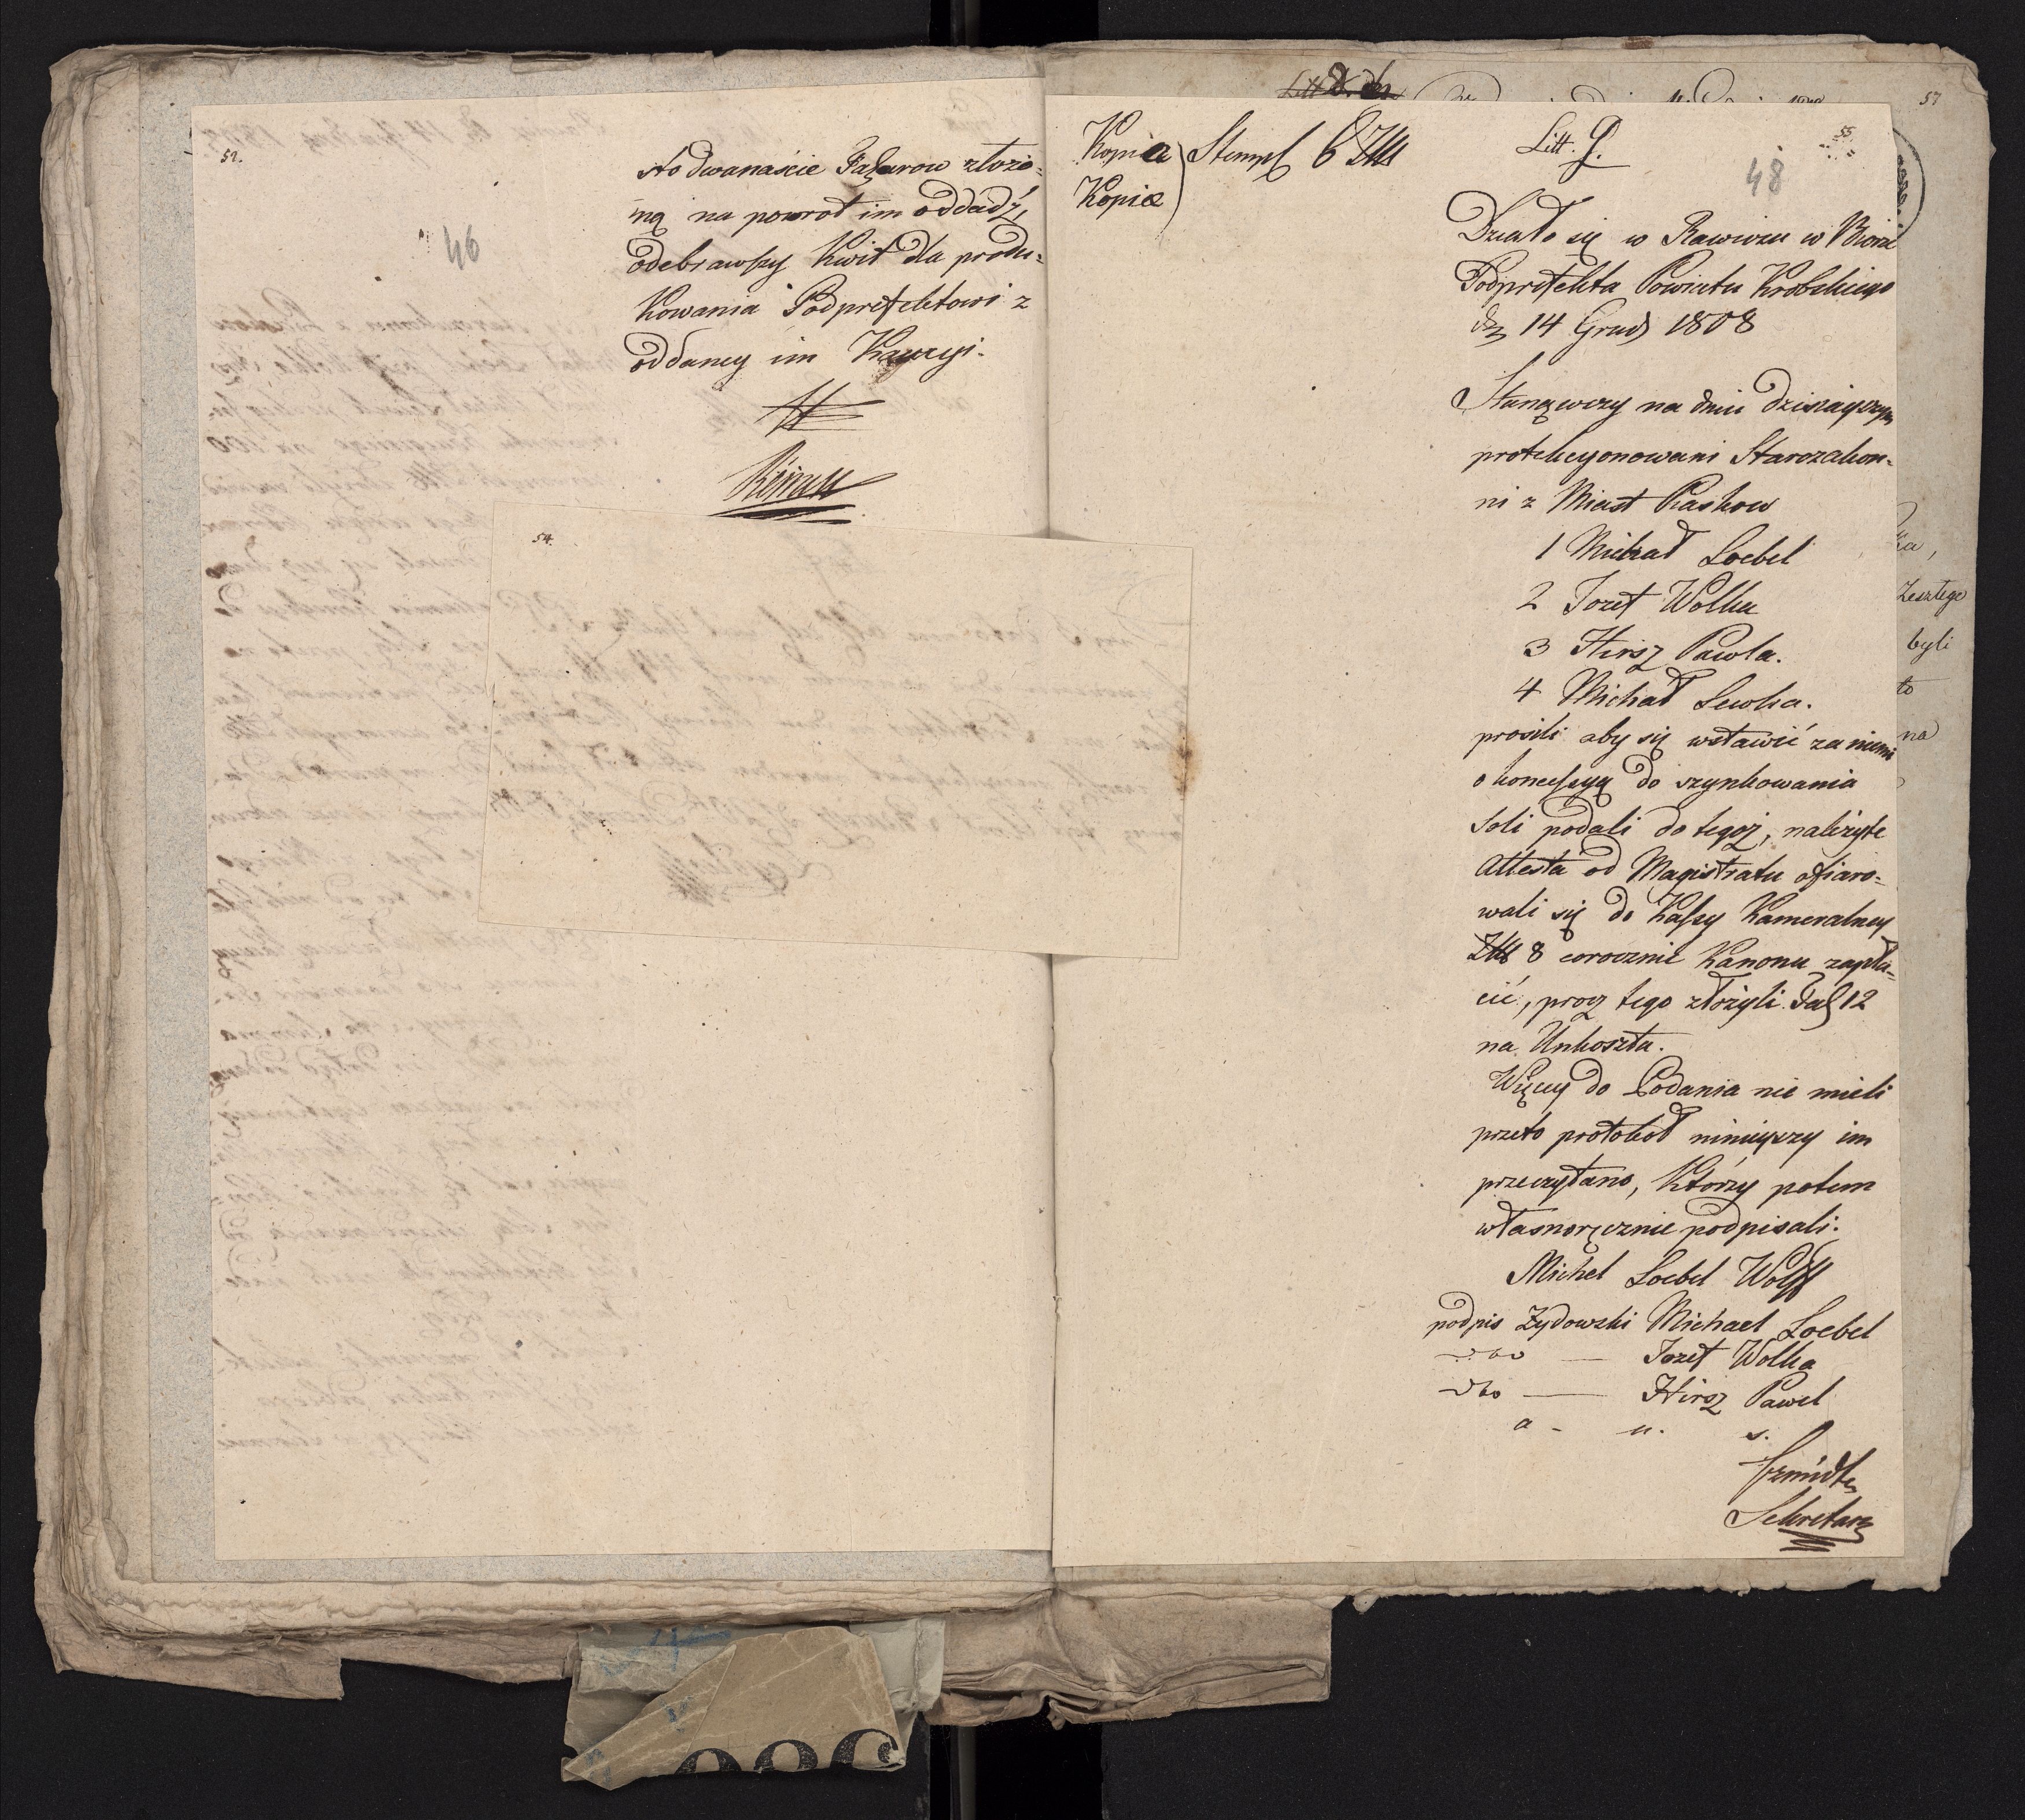 52.
46
sto dwanaście Talarow złożo=
ną na powrot im oddadź,
odebrawszy Kwit dla produ=
kowania Podprefektowi z
oddaney im Kaucyi.
54.
57
Kopia
Kopia
Stempl 6 Zll
Litt. G.
55.
48
Działo się w Rawiczu w Biorze
Podprefekta Powiatu Krobskiego
d. 14 Grud 1808
Stanąwszy na dniu dzisiayszym
protekcyonowani Starozakon-
ni z Miast Raszkow
1 Michał Loebel
2 Jozef Wolka
3 Hirsz Pawla.
4 Michał Lewka.
prosili aby się wstawić za niemi
o koncessyą do szynkowania
Soli podali do tegoż, należyte
Attesta od Magistratu ofiaro=
wali się do Kassy Kameralney
Zll 8 corocznie Kanonu zapła=
cić, procz tego złożyli Tal 12
na Unkoszta.
Więcey do Podania nie mieli
przeto protokoł ninieyszy im
przeczytano, Którzy potem
własnoręcznie podpisali.
Michel Loebel Wolff
podpis Zydowski Michael Loebel
dto — Jozef Wolka
dto — Hirsz Pawel
a - u. s.
Szmidt
Sekretarz
ka,
Zesztego
byli
to
na